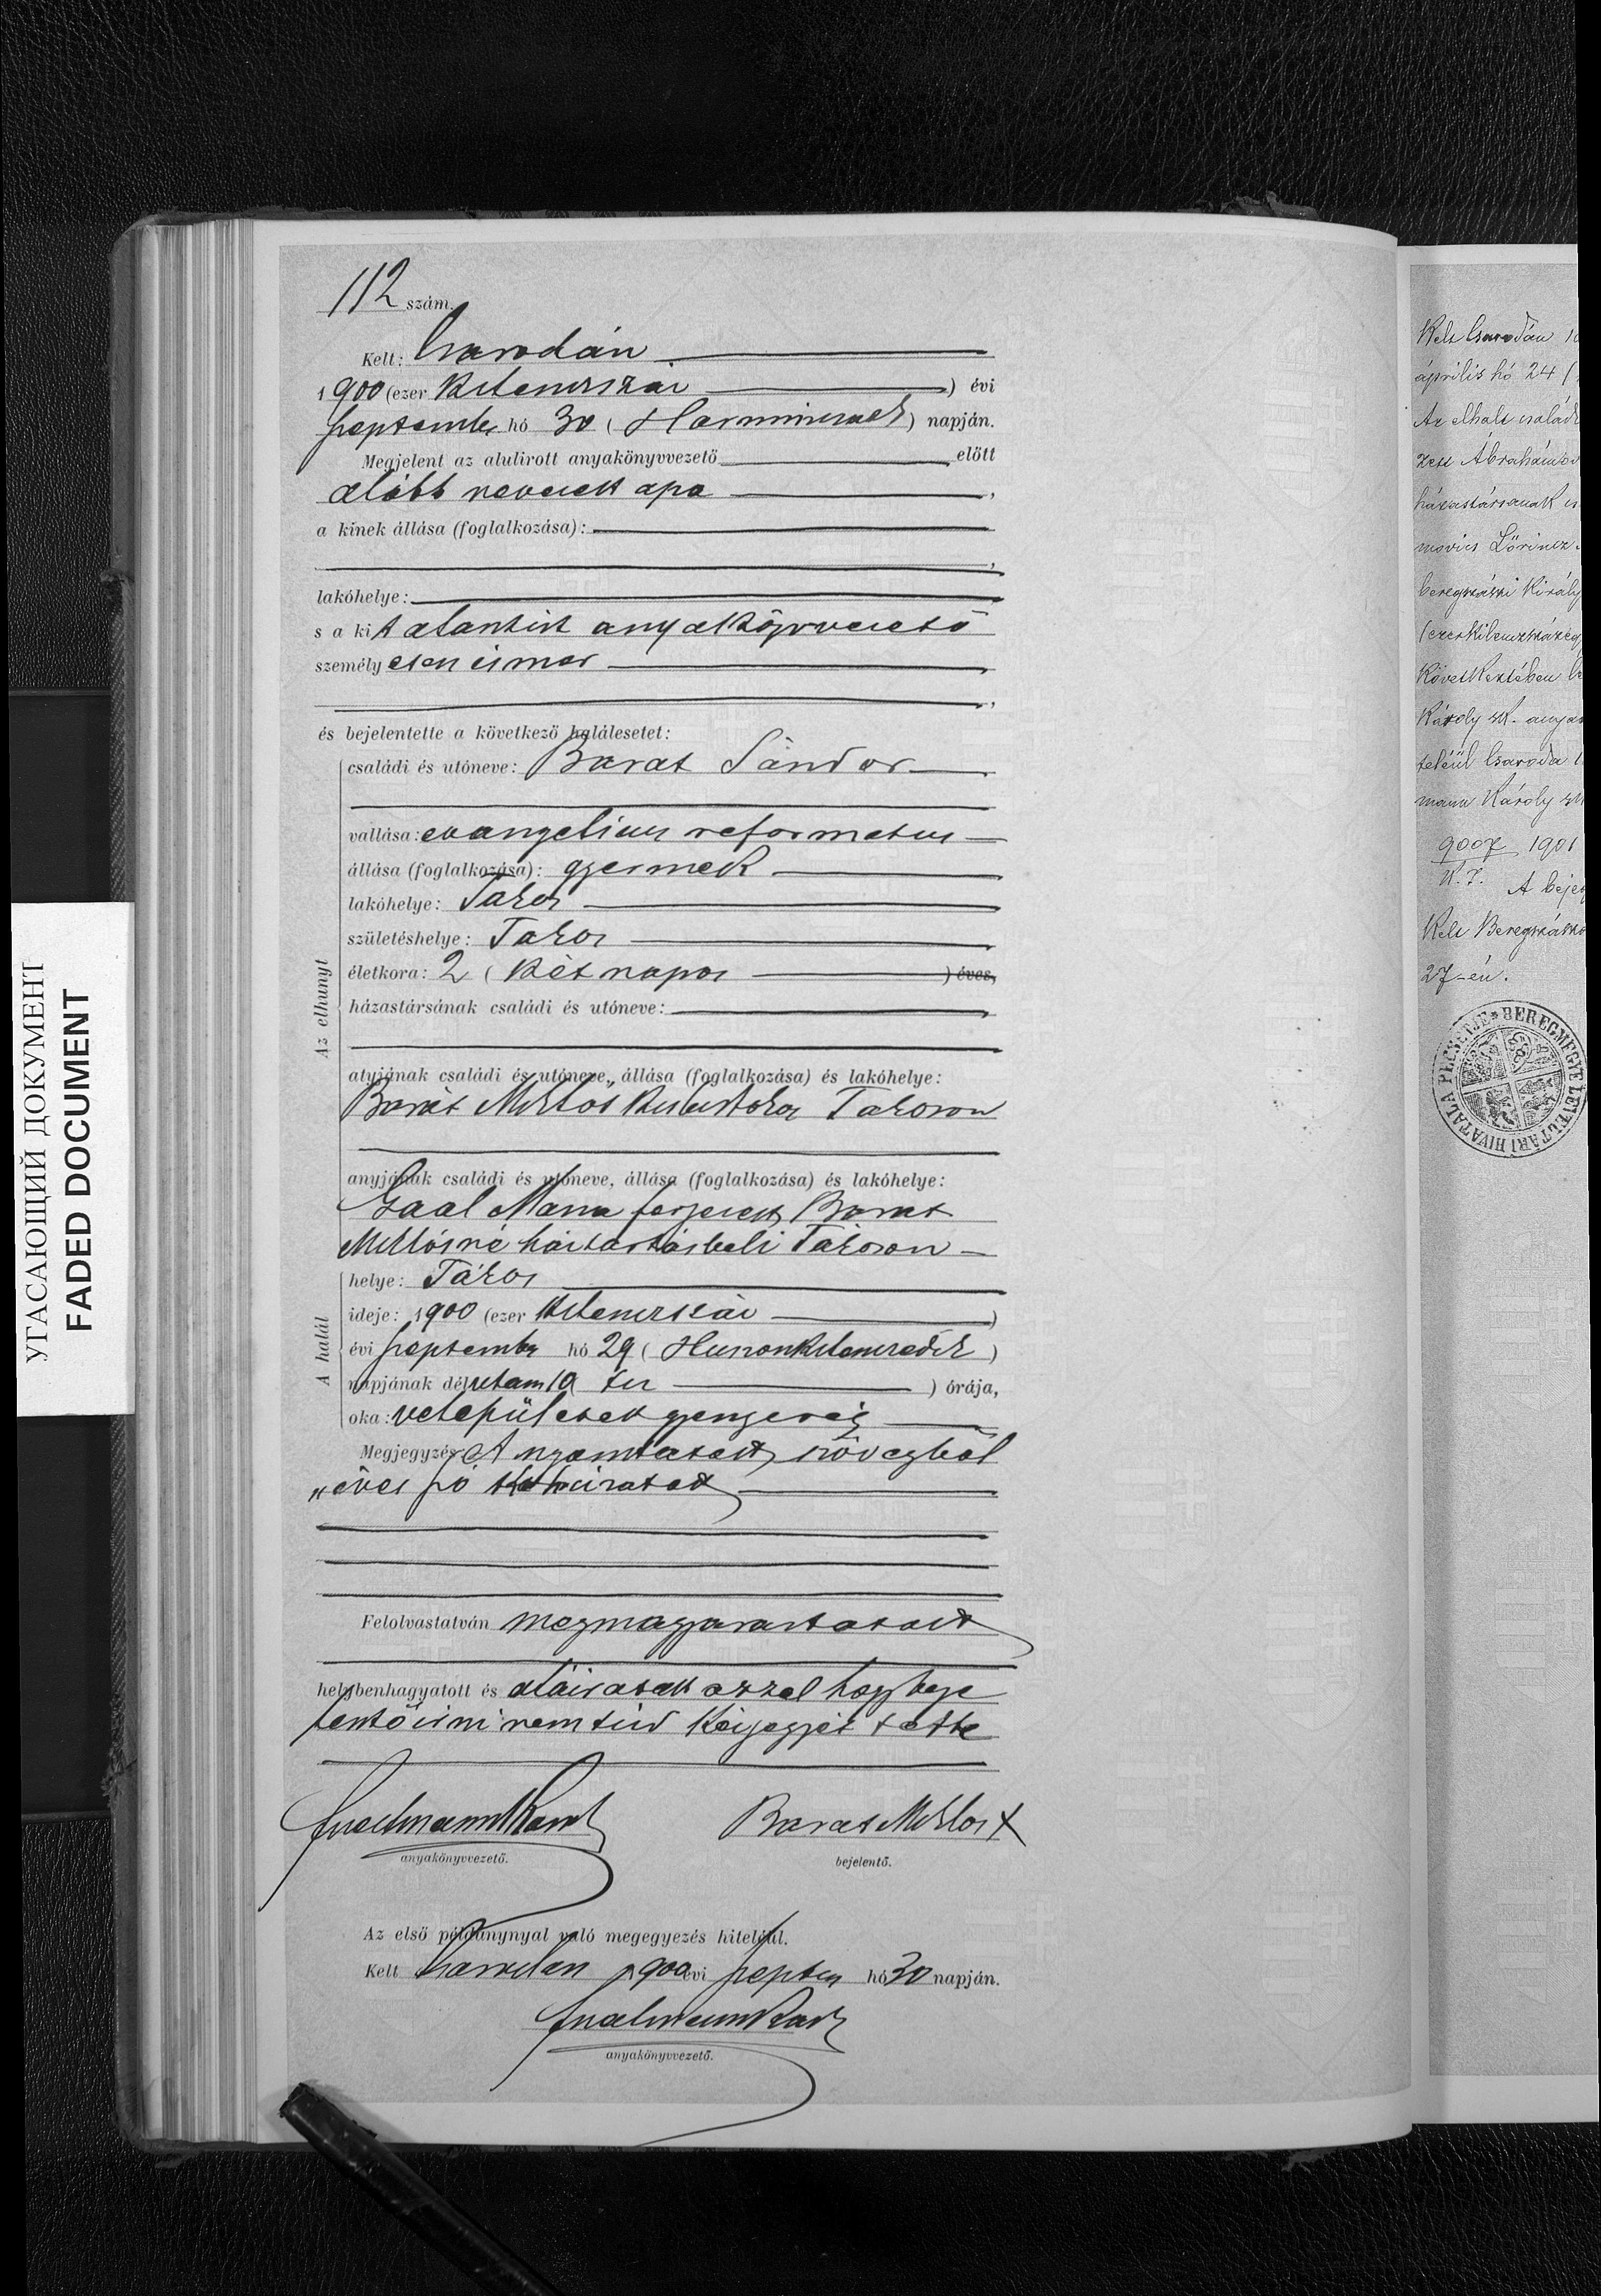 112 szám.
Kelt: Csarodán
1900 (ezer kilenczszáz) évi
szeptember hó 30 (Harminczadik) napján.
Megjelent az alulirott anyakönyvvezető előtt
alább nevezett apa,
a kinek állása (foglalkozása):
lakóhelye:
s a kit alantirt anyakönyvvezető
személyesen ismer,
és bejelentette a következő halálesetet:
Az elhunyt
családi és utóneve: Barat Sándor
vallása: evangelium reformatus
állása (foglalkozása): gyermek
lakóhelye: Tákos
születéshelye: Takos
életkora: 2 (két napos) éves,
házastársának családi és utóneve:
atyjának családi és utóneve, állása (foglalkozása) és lakóhelye:
Barat Miklos Takoson
anyjának családi és utóneve, állása (foglalkozása) és lakóhelye:
Gaal Maria ferjezett Barat
Miklósné háztartásbeli Tákoson
A halál
helye: Tákos
ideje: 1900 (ezer kilenczszáz)
évi szeptember hó 29 (Huszonkilenczedik)
napjának délutan 10 tiz) órája,
oka: veleszületett gyengeség
Megjegyzés: A nyomtatott szövegből
„éves szó kihuzatott
Felolvastatván megmagyaraztatott
helybenhagyatott és aláiratott azzal hogy beje
lentő irni nem tud kézjegyét tette
anyakönyvvezető.
Barat Miklos X
bejelentő.
Az első példánynyal való megegyezés hiteléül.
Kelt Csarodan 1900 évi szeptem hó 30 napján.
anyakönyvvezető.
Kelt Csarodán
április hó 24 (
Az elhalt család
zett Ábrahámov
házastársanak
movics Lőrincz
beregszászi király
(ezerkilenczszázegy
következtében
Károly sk. anya
teléül Csaroda
mann Károly sk
9007 1901
K. I. A beje
Kelt Beregszász
27-én.
BEREGMEGYE LEVÉLTÁRI HIVATALA PECSÉTJE
УГАСАЮЩИЙ ДОКУМЕНТ
FADED DOCUMENT